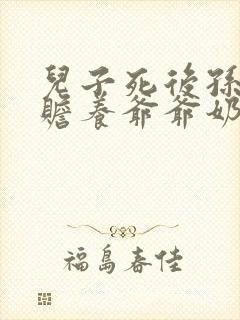 兒子死後孫
贍養爺爺奶
福島春佳